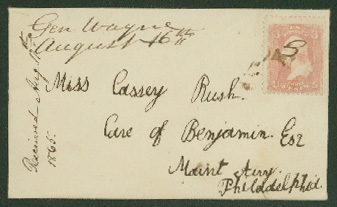 Gen Wayne
August 16th
Miss Cassey Rush.
Care of Benjamin. Esq
Maint Airy
Philadelphia
Received Aug
1865.
3 3